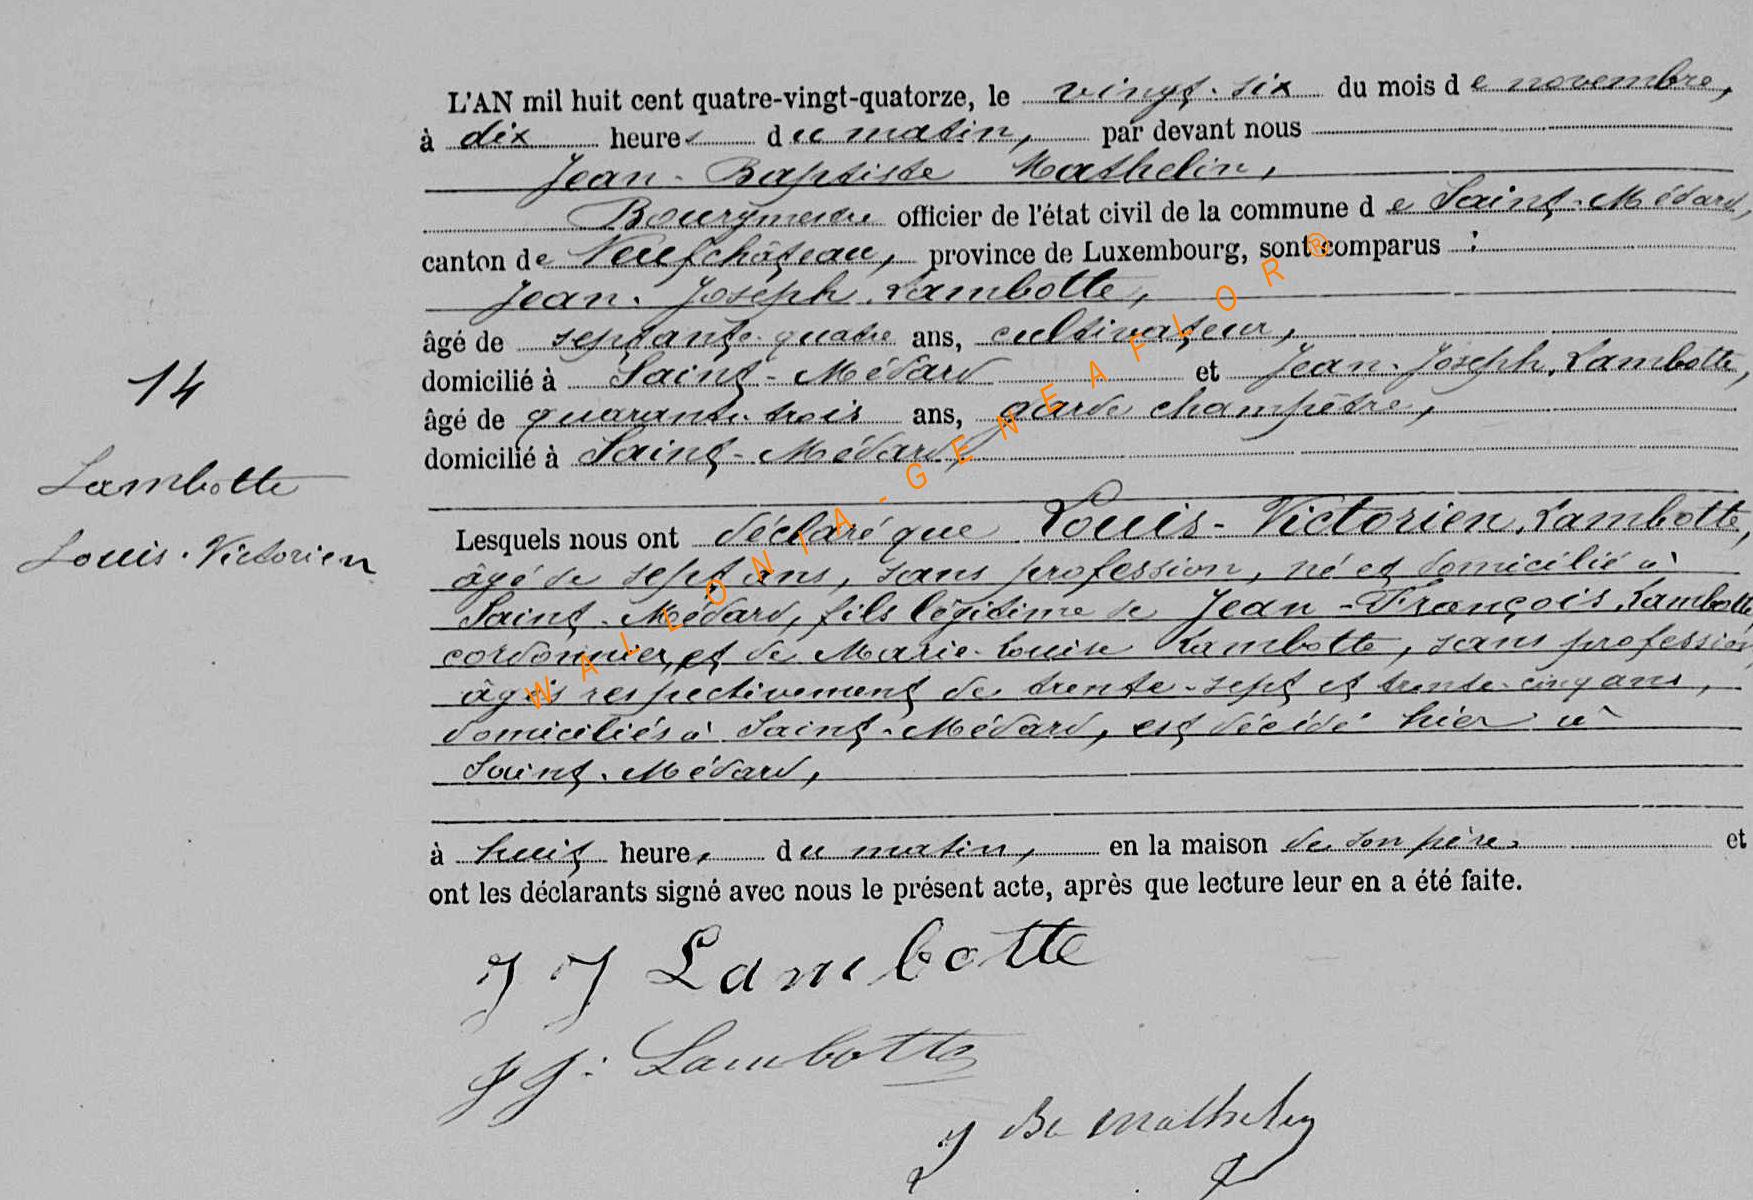 L'AN mil huit cent quatre-vingt-quatorze, le vingt-six du mois de novembre,
à dix heures du matin, par devant nous
Jean-Baptiste Mathelin,
Bourgmestre officier de l'état civil de la commune de Saint-Médard,
canton de Neufchâteau, province de Luxembourg, sont comparus :
Jean-Joseph Lambotte,
âgé de septante-quatre ans, cultivateur,
domicilié à Saint-Médard et Jean-Joseph Lambotte,
âgé de quarante-trois ans, garde champêtre,
domicilié à Saint-Médard,
14
Lambotte
Louis-Victorien
Lesquels nous ont déclaré que Louis-Victorien Lambotte,
âgé de sept ans, sans profession, né et domicilié à
Saint-Médard, fils légitime de Jean-François Lambotte,
cordonnier, et de Marie-Louise Lambotte, sans profession,
âgés respectivement de trente-sept et trente-cinq ans,
domiciliés à Saint-Médard, est décédé hier à
Saint-Médard,
à huit heures du matin, en la maison de son père, et
ont les déclarants signé avec nous le présent acte, après que lecture leur en a été faite.
J J Lambotte
J J. Lambotte
J Bte Mathelin
WALLONIA-GENEAFLOR®